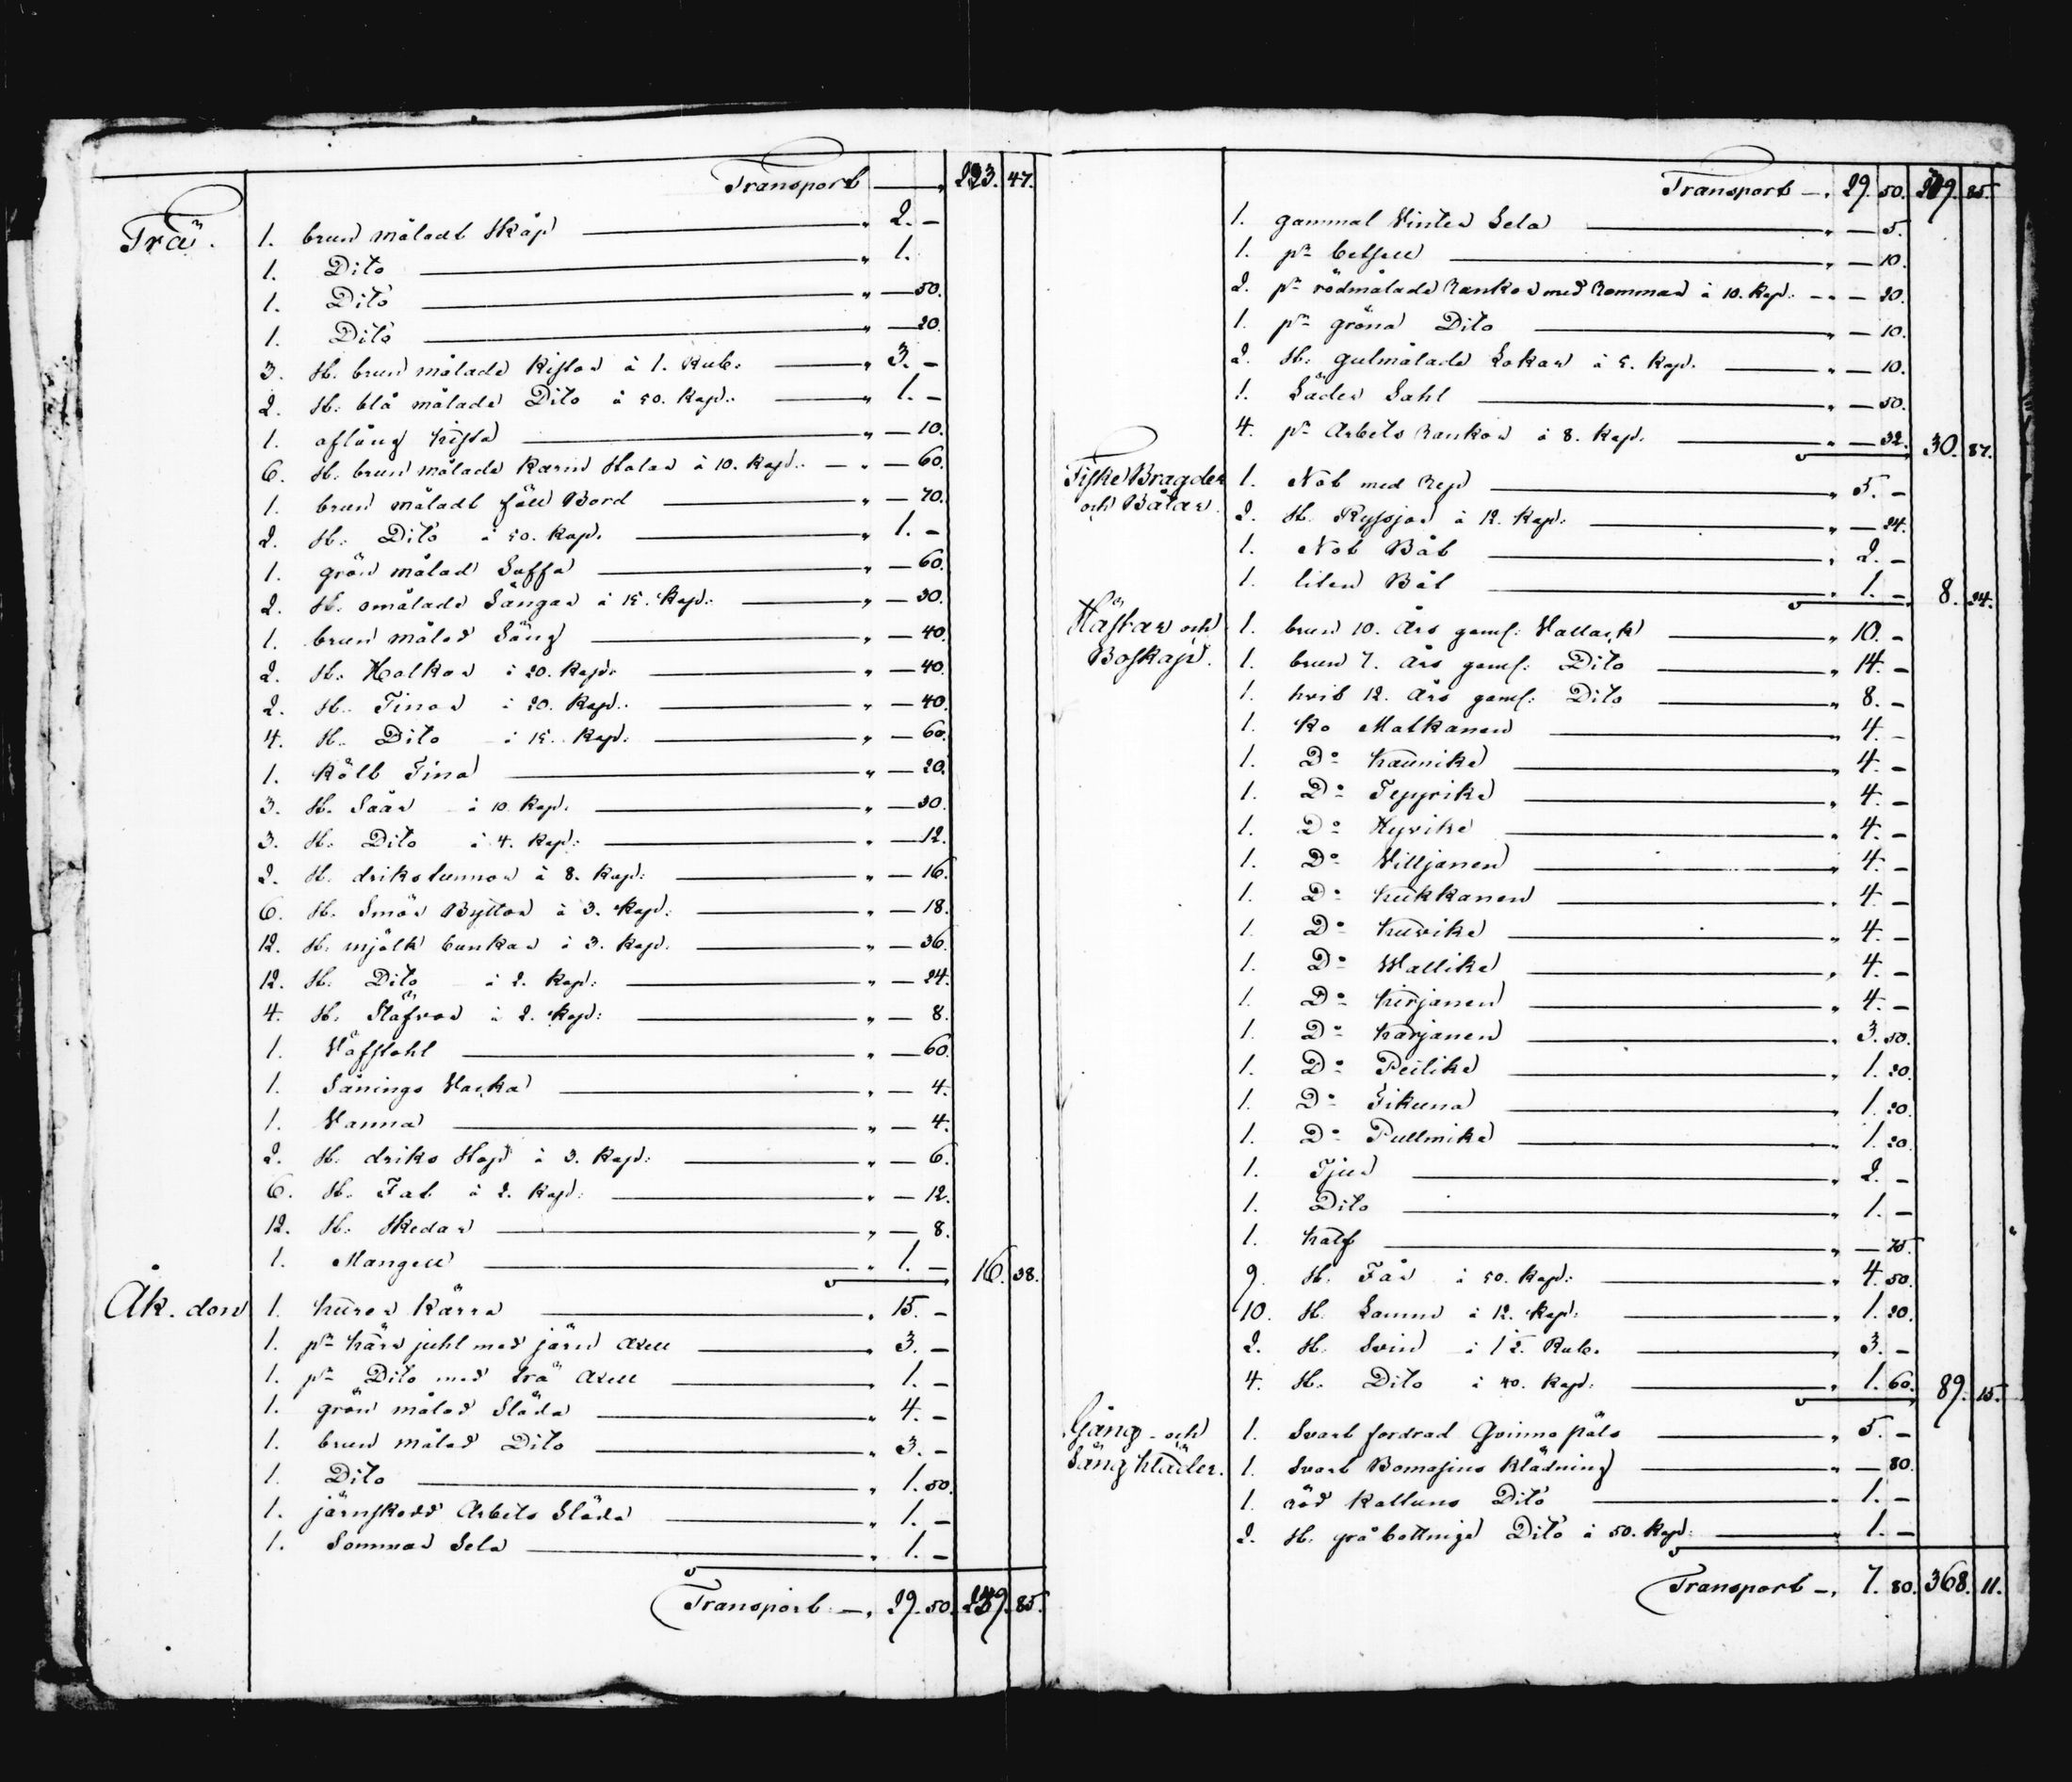 Transport — „ 223. 47.
Trä. 1. brun måladt Skåp — „ 2. –
1. Dito — „ 1.
1. Dito — „ — 50.
1. Dito — „ — 20.
3. St. brun målade Kistor à 1. Rub. — „ 3. –
2. St. blå målade Dito à 50. Kop. — „ 1. –
1. aflång kista — „ — 10.
6. St. brun målade Karm Stolar à 10. Kop. — „ — 60.
1. brun måladt fäll Bord — „ — 70.
2. St. Dito à 50. Kop. — „ 1. –
1. grön målad Soffa — „ — 60.
2. St. omålade Sängar à 15. Kop. — „ — 30.
1. brun målad Säng — „ — 40.
2. St. Holkar à 20. Kop. — „ — 40.
2. St. Tinor à 20. Kop. — „ — 40.
4. St. Dito à 15. Kop. — „ — 60.
1. Kölb Tina — „ — 20.
3. St. Såår à 10. Kop. — „ — 30.
3. St. Dito à 4. Kop. — „ — 12.
2. St. drikstunnor à 8. Kop. — „ — 16.
6. St. Smör Byttor à 3. Kop. — „ — 18.
12. St. mjölk bunkar à 3. Kop. — „ — 36.
12. St. Dito à 2. Kop. — „ — 24.
4. St. Stäfvor à 2. Kop. — „ — 8.
1. Väfstohl — „ — 60.
1. Sånings Vacka — „ — 4.
1. Vanna — „ — 4.
2. St. driks Stop à 3. Kop. — „ — 6.
6. St. Fat à 2. Kop. — „ — 12.
12. St. Skedar — „ — 8.
1. Mangell — „ 1. – 16. 38.
Åk. don 1. kurer Kärra — „ 15. –
1. pr kärr juhl med järn Axell — „ 3. –
1. pr Dito med trä Axell — „ 1. –
1. grön målad Släda — „ 4. –
1. brun målad Dito — „ 3. –
1. Dito — „ 1. 50.
1. järnskodd Arbets Släda — „ 1. –
1. Sommar Sela — „ 1. –
Transport — „ 29. 50. 239. 85.
Transport — „ 29. 50. 239. 85.
1. gammal Vinter Sela — „ — 5.
1. pr betsell — „ — 10.
2. pr rödmålade Rankor med Rommar à 10. Kop. — „ — 20.
1. pr gröna Dito — „ — 10.
2. St. gulmålade Lokar à 5. Kop. — „ — 10.
1. Läder Sahl — „ — 50.
4. pr Arbets Rankor à 8. Kop. — „ — 32. 30. 87.
Fiske Bragder
och Båtar. 1. Not med Rep — „ 5. –
2. St. Ryssjor à 12. Kop. — „ — 24.
1. Not Båt — „ 2. –
1. liten Båt — „ 1. – 8. 24.
Hästar och
Boskap. 1. brun 10. års gaml. Vallack — „ 10. –
1. brun 7. års gaml. Dito — „ 14. –
1. hvit 12. års gaml. Dito — „ 8. –
1. ko Matkanen — „ 4. –
1. Do Kaunike — „ 4. –
1. Do Tepyrike — „ 4. –
1. Do Hyvike — „ 4. –
1. Do Villjanen — „ 4. –
1. Do Kukkanen — „ 4. –
1. Do Kuvike — „ 4. –
1. Do Wallike — „ 4. –
1. Do Kirjanen — „ 4. –
1. Do Karjanen — „ 3. 50.
1. Do Peilike — „ 1. 20.
1. Do Fikuna — „ 1. 20.
1. Do Pullmike — „ 1. 20.
1. Tjur — „ 2. –
1. Dito — „ 1. –
1. kalf — „ — 75.
9. St. Får à 50. Kop. — „ 4. 50.
10. St. Lamm à 12. Kop. — „ 1. 20.
2. St. Svin à 1½. Rub. — „ 3. –
4. St. Dito à 40. Kop. — „ 1. 60. 89. 15.
Gång- och
Säng kläder. 1. Svart fordrad Qvinns päls — „ 5. –
1. Svart Bomasins Klädning — „ — 80.
1. röd Kattuns Dito — „ 1. –
2. St. grå bottniga Dito à 50. Kop. — „ 1. –
Transport — „ 7. 80. 368. 11.